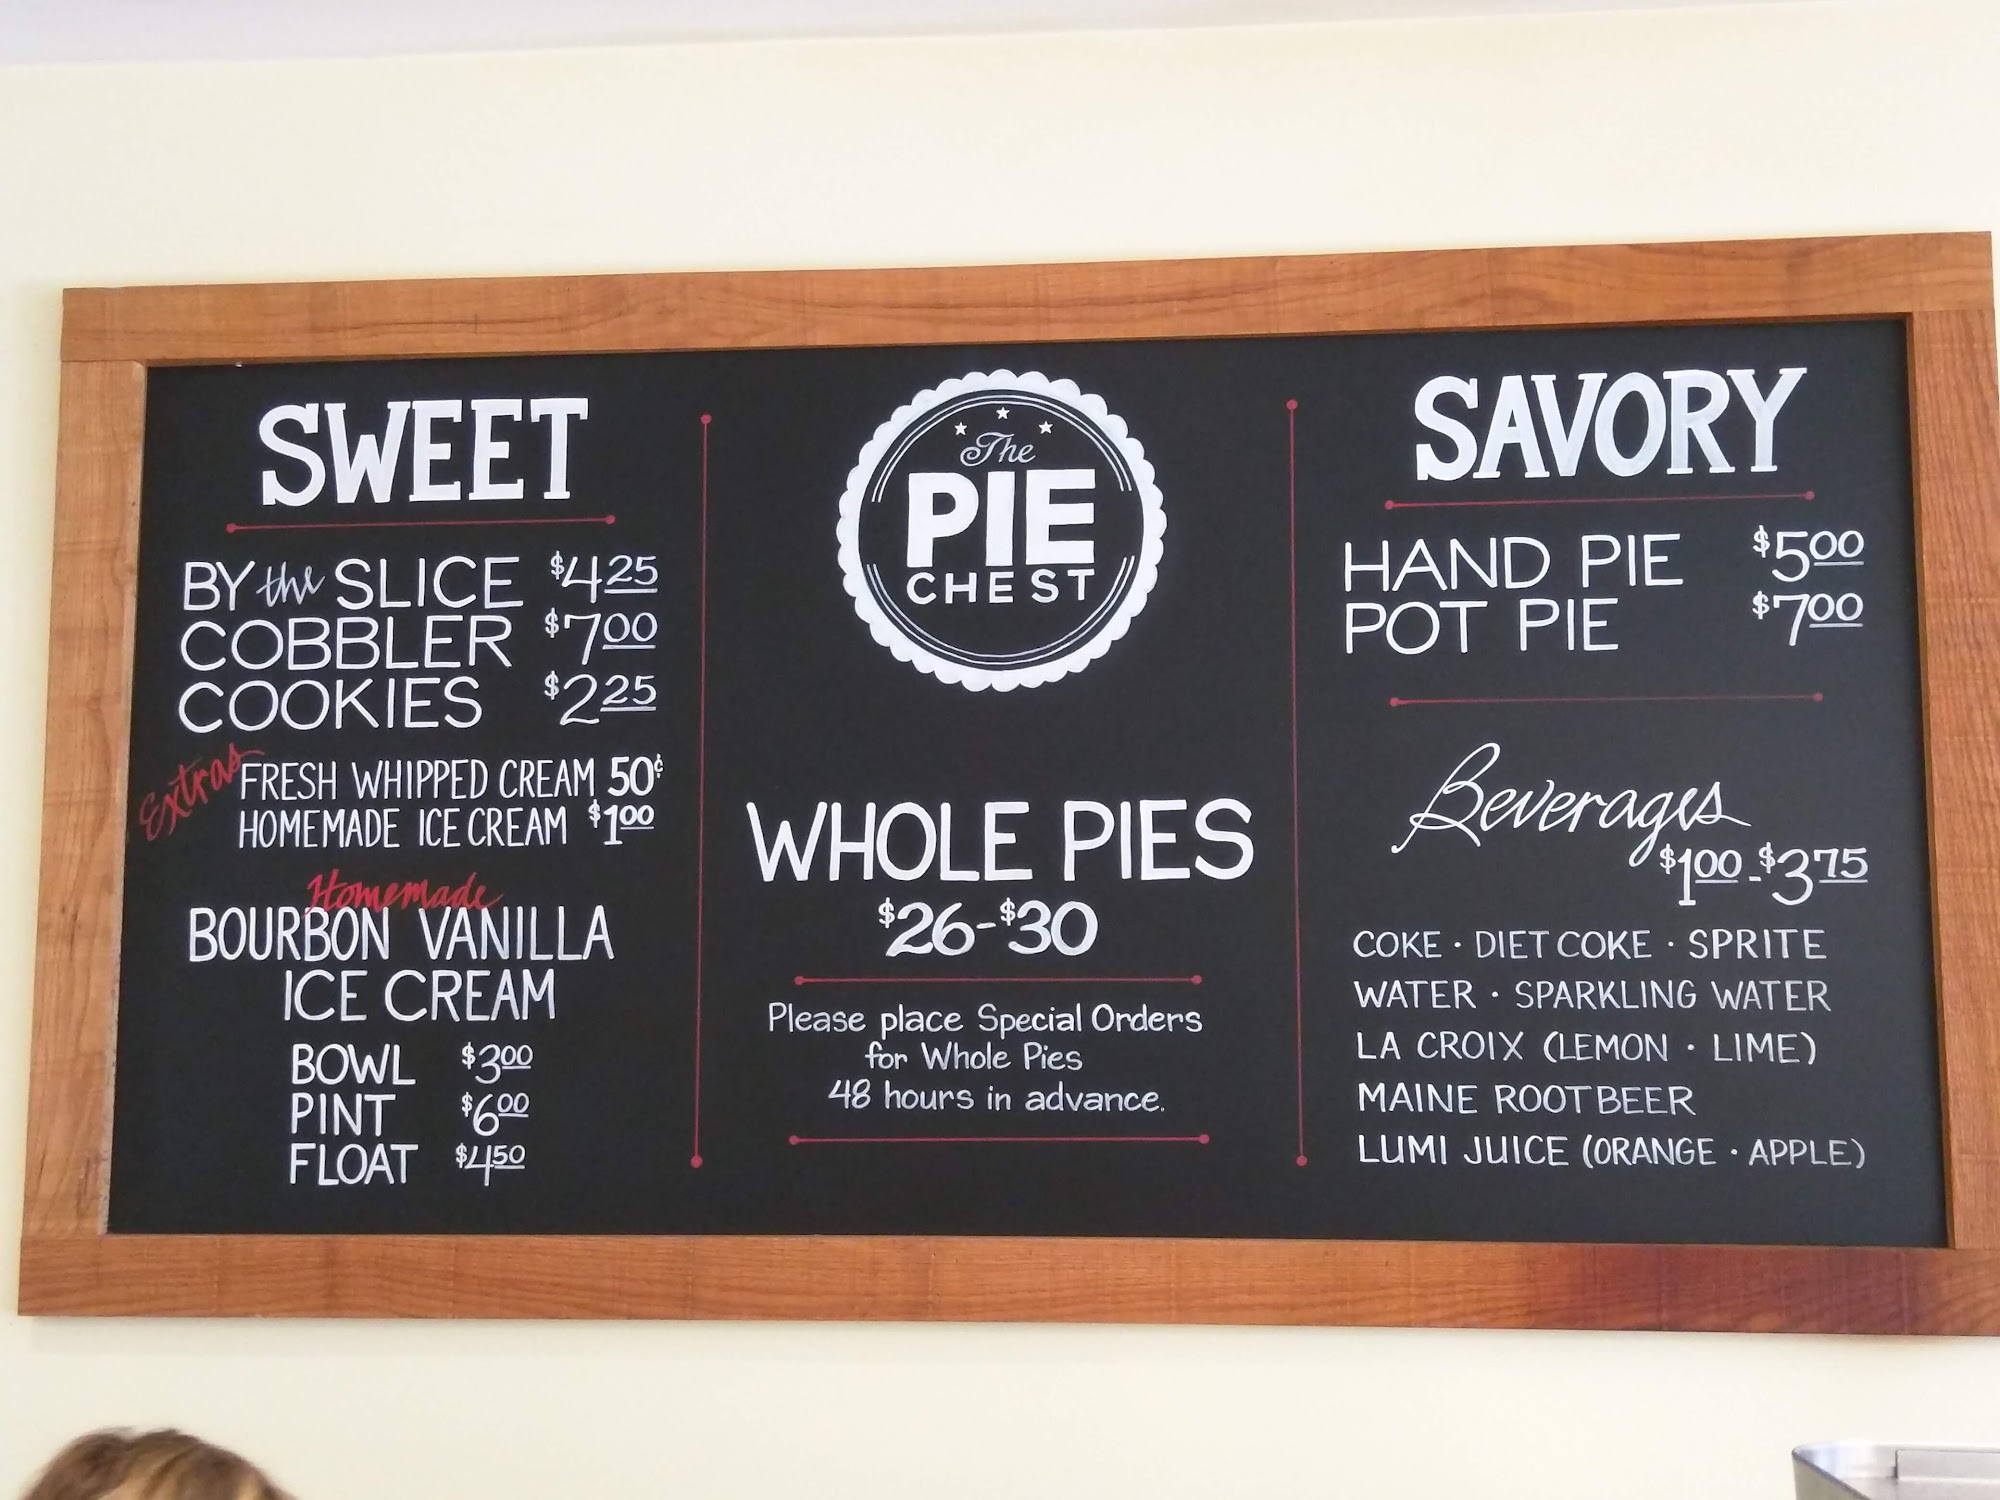 SWEET
BY the SLICE $4.25
COBBLER $7.00
COOKIES $2.25
Extras
FRESH WHIPPED CREAM 50¢
HOMEMADE ICE CREAM $1.00
Homemade
BOURBON VANILLA
ICE CREAM
BOWL $3.00
PINT $6.00
FLOAT $4.50
The
PIE
CHEST
WHOLE PIES
$26-$30
Please place Special Orders
for Whole Pies
48 hours in advance.
SAVORY
HAND PIE $5.00
POT PIE $7.00
Beverages
$1.00-$3.75
COKE · DIET COKE · SPRITE
WATER · SPARKLING WATER
LA CROIX (LEMON · LIME)
MAINE ROOT BEER
LUMI JUICE (ORANGE · APPLE)